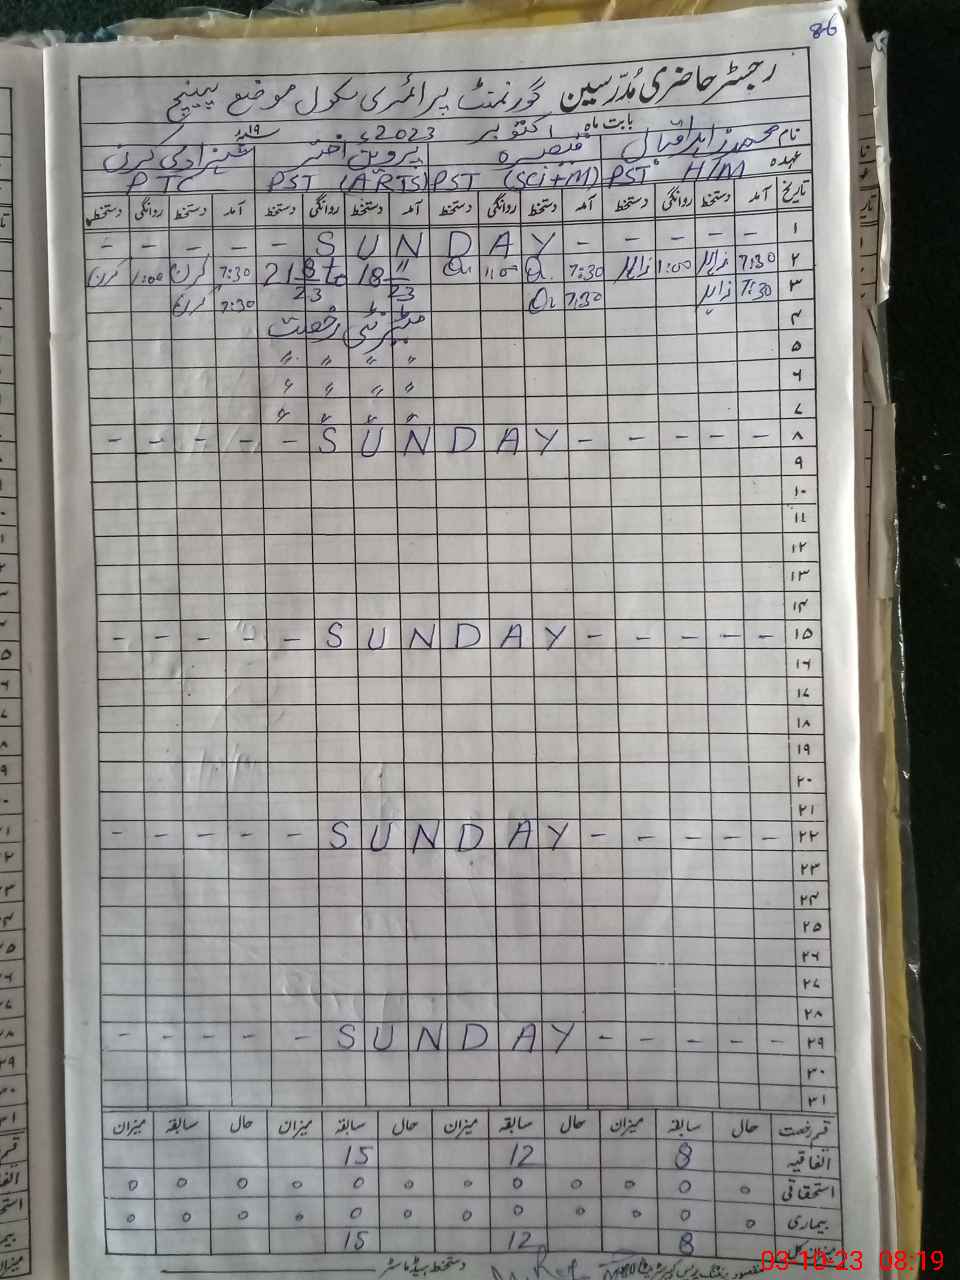 86
رجسٹر حاضری مُدرّسین گورنمنٹ پرائمری سکول موضع
بابت ماہ اکتوبر 2023ء ۱۹ء
نام محمد زاہد اقبال قیصرہ پروین اختر شہزادی کرن
عہدہ PST H/M PST (Sci+M) PST (ARTS) PTC
تاریخ آمد دستخط روانگی دستخط آمد دستخط روانگی دستخط آمد دستخط روانگی دستخط آمد دستخط روانگی دستخط
۱ - - - - - S U N D A Y - - - - -
۲ 7:30 زاہد 1:00 زاہد 7:30 Q. 1:00 Q. 〃 18/23 to 21 8/23 7:30 کرن 1:00 کرن
۳ 7:30 زاہد 7:30 Q. 7:30 کرن
۴ میٹرنٹی رخصت
۵ 〃 〃 〃 〃
۶ 〃 〃 〃 〃
۷ 〃 〃 〃 〃
۸ - - - - - S U N D A Y - - - - -
۹
۱۰
۱۱
۱۲
۱۳
۱۴
۱۵ - - - - - S U N D A Y - - - - -
۱۶
۱۷
۱۸
۱۹
۲۰
۲۱
۲۲ - - - - - S U N D A Y - - - - -
۲۳
۲۴
۲۵
۲۶
۲۷
۲۸
۲۹ - - - - - S U N D A Y - - - - -
۳۰
۳۱
قسم رخصت حال سابقہ میزان حال سابقہ میزان حال سابقہ میزان حال سابقہ میزان
اتفاقیہ 8 12 15
استحقاقی 0 0 0 0 0 0 0 0 0 0 0 0
بیماری 0 0 0 0 0 0 0 0 0 0 0 0
میزان کل 8 12 15
دستخط ہیڈ ماسٹر
03-10-23 08:19